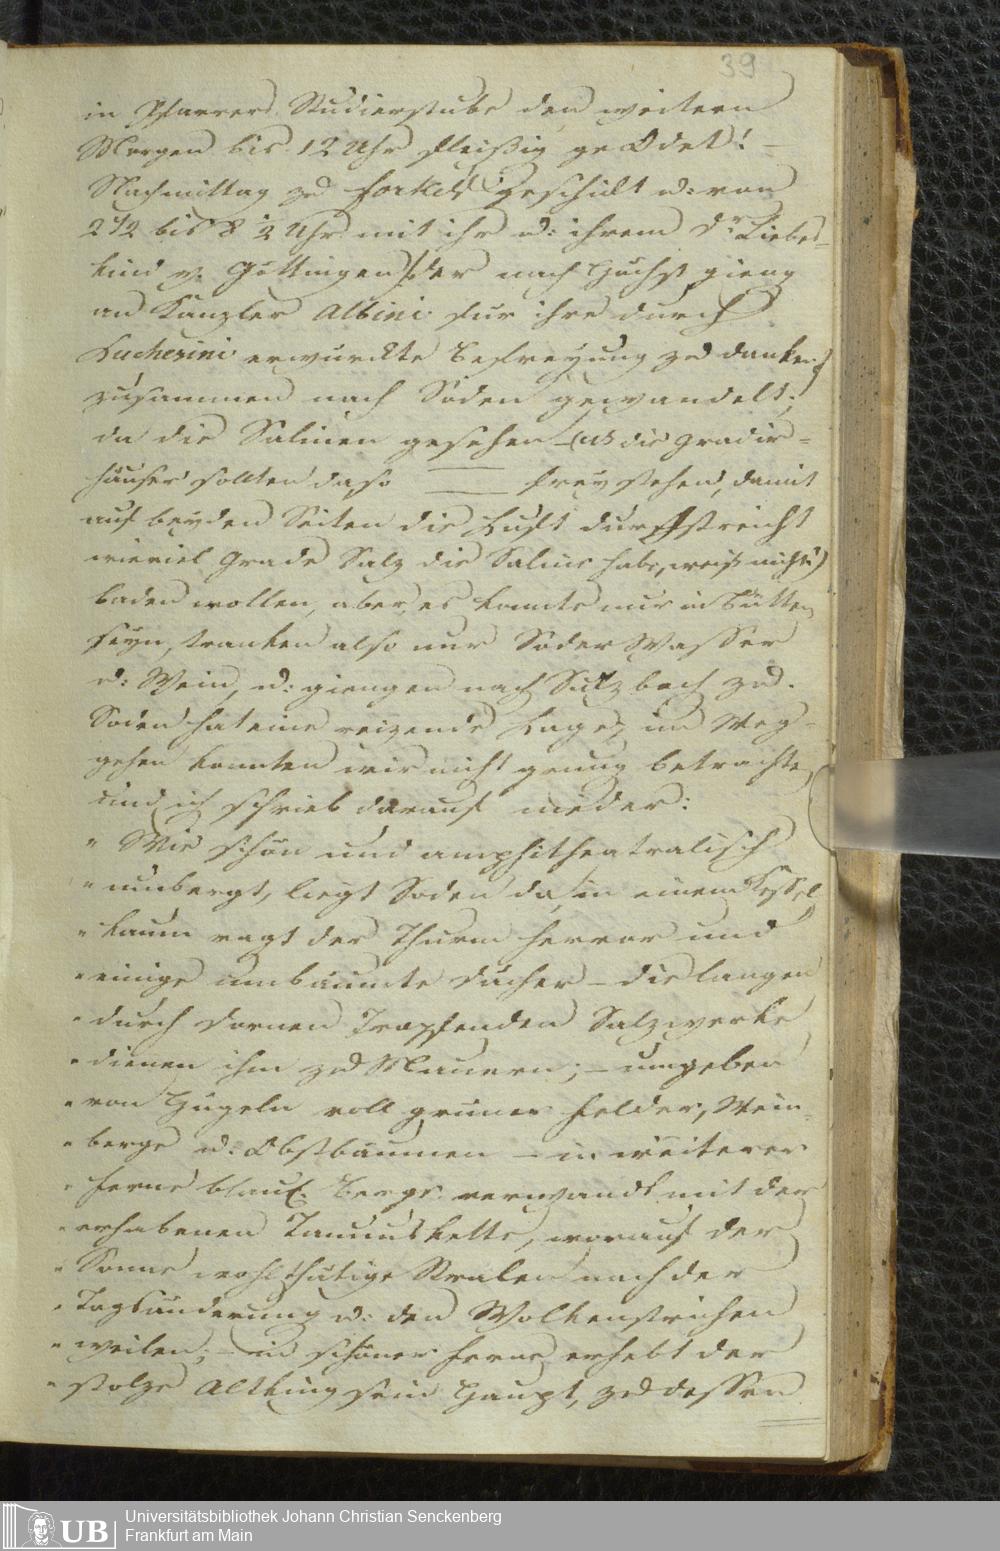 39
in Pfarrers Studierstube den weitern
Morgen bis 12 Uhr fleißig geOdet! –
Nachmittag zu Forkels geschikt u: von
2 1/2 bis 8 1/2 Uhr mit ihr u: ihrem Dr Liebes-
kind v. Göttingen /: der nach Höchst gieng
an Kanzler Albini für ihre durch
Luchesini erwürckte Befreyung zu danken)
zusammen nach Soden gewandelt;
da die Salinen gesehen – (NB die Gradir=
häuser sollten daso frey stehen, damit
auf beyden Seiten die Luft durchstreicht
wieviel Grade Salz die Saline habe, weiß nicht)
baden wollen, aber es konnte nur in Bütten
seyn, tranken also nur Soder Wasser
u: Wein, u: giengen nach Sulzbach zu.
Soden hat eine reizende Lage, im Weg-
gehen konnten wir nicht genug betrachten
und ich schrieb darauf nieder:
" Wie schön und amphitheatralisch
" umbergt, liegt Soden da, in einem Kessel
" kaum ragt der Thurm hervor und
" einige umbäumte Dächer – die langen
" durch Dornen Tropfenden Salzwerke
" dienen ihm zu Mauern; – umgeben
" von Hügeln voll grüner Felder, Wein-
" berge u: Obstbäumen – in weiterer
" Ferne blaue Berge verwandt mit der
" erhabenen Taunuskette, worauf der
" Sonne wohlthätige Stralen nach der
" Tagsänderung u: den Wolkenstrichen
" weilen; – in schöner Ferne erhebt der
" stolze Altking sein Haupt, zu dessen
UB
Universitätsbibliothek Johann Christian Senckenberg
Frankfurt am Main